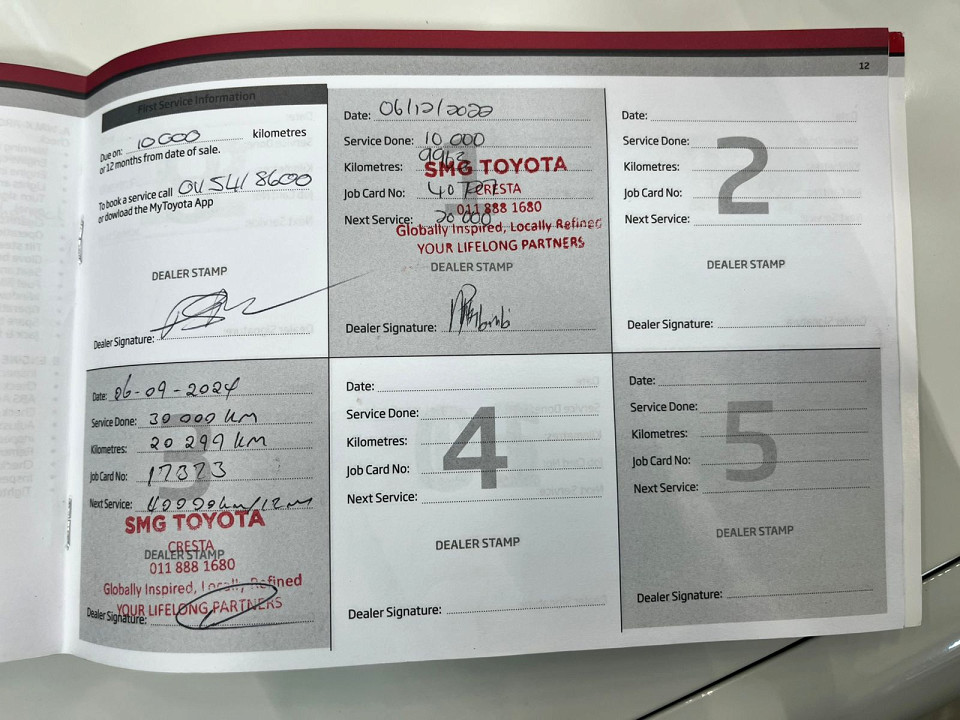 12
First Service Information
Due on: 10 000 kilometres
or 12 months from date of sale.
To book a service call 011 541 8600
or dowload the MyToyota App
DEALER STAMP
Dealer Signature:
Date: 06/12/2022
Service Done: 10 000
Kilometres: 9962
SMG TOYOTA
Job Card No: 40777
CRESTA
011 888 1680
Next Service: 20 000
Globally Inspired, Locally Refined
YOUR LIFELONG PARTNERS
DEALER STAMP
Dealer Signature:
2
Date:
Service Done:
Kilometres:
Job Card No:
Next Service:
DEALER STAMP
Dealer Signature:
3
Date: 06-09-2024
Service Done: 30 000 km
Kilometres: 20 299 km
Job Card No: 17373
Next Service: 40000km/12m
SMG TOYOTA
CRESTA
DEALER STAMP
011 888 1680
Globally Inspired, Locally Refined
YOUR LIFELONG PARTNERS
Dealer Signature:
4
Date:
Service Done:
Kilometres:
Job Card No:
Next Service:
DEALER STAMP
Dealer Signature:
5
Date:
Service Done:
Kilometres:
Job Card No:
Next Service:
DEALER STAMP
Dealer Signature: